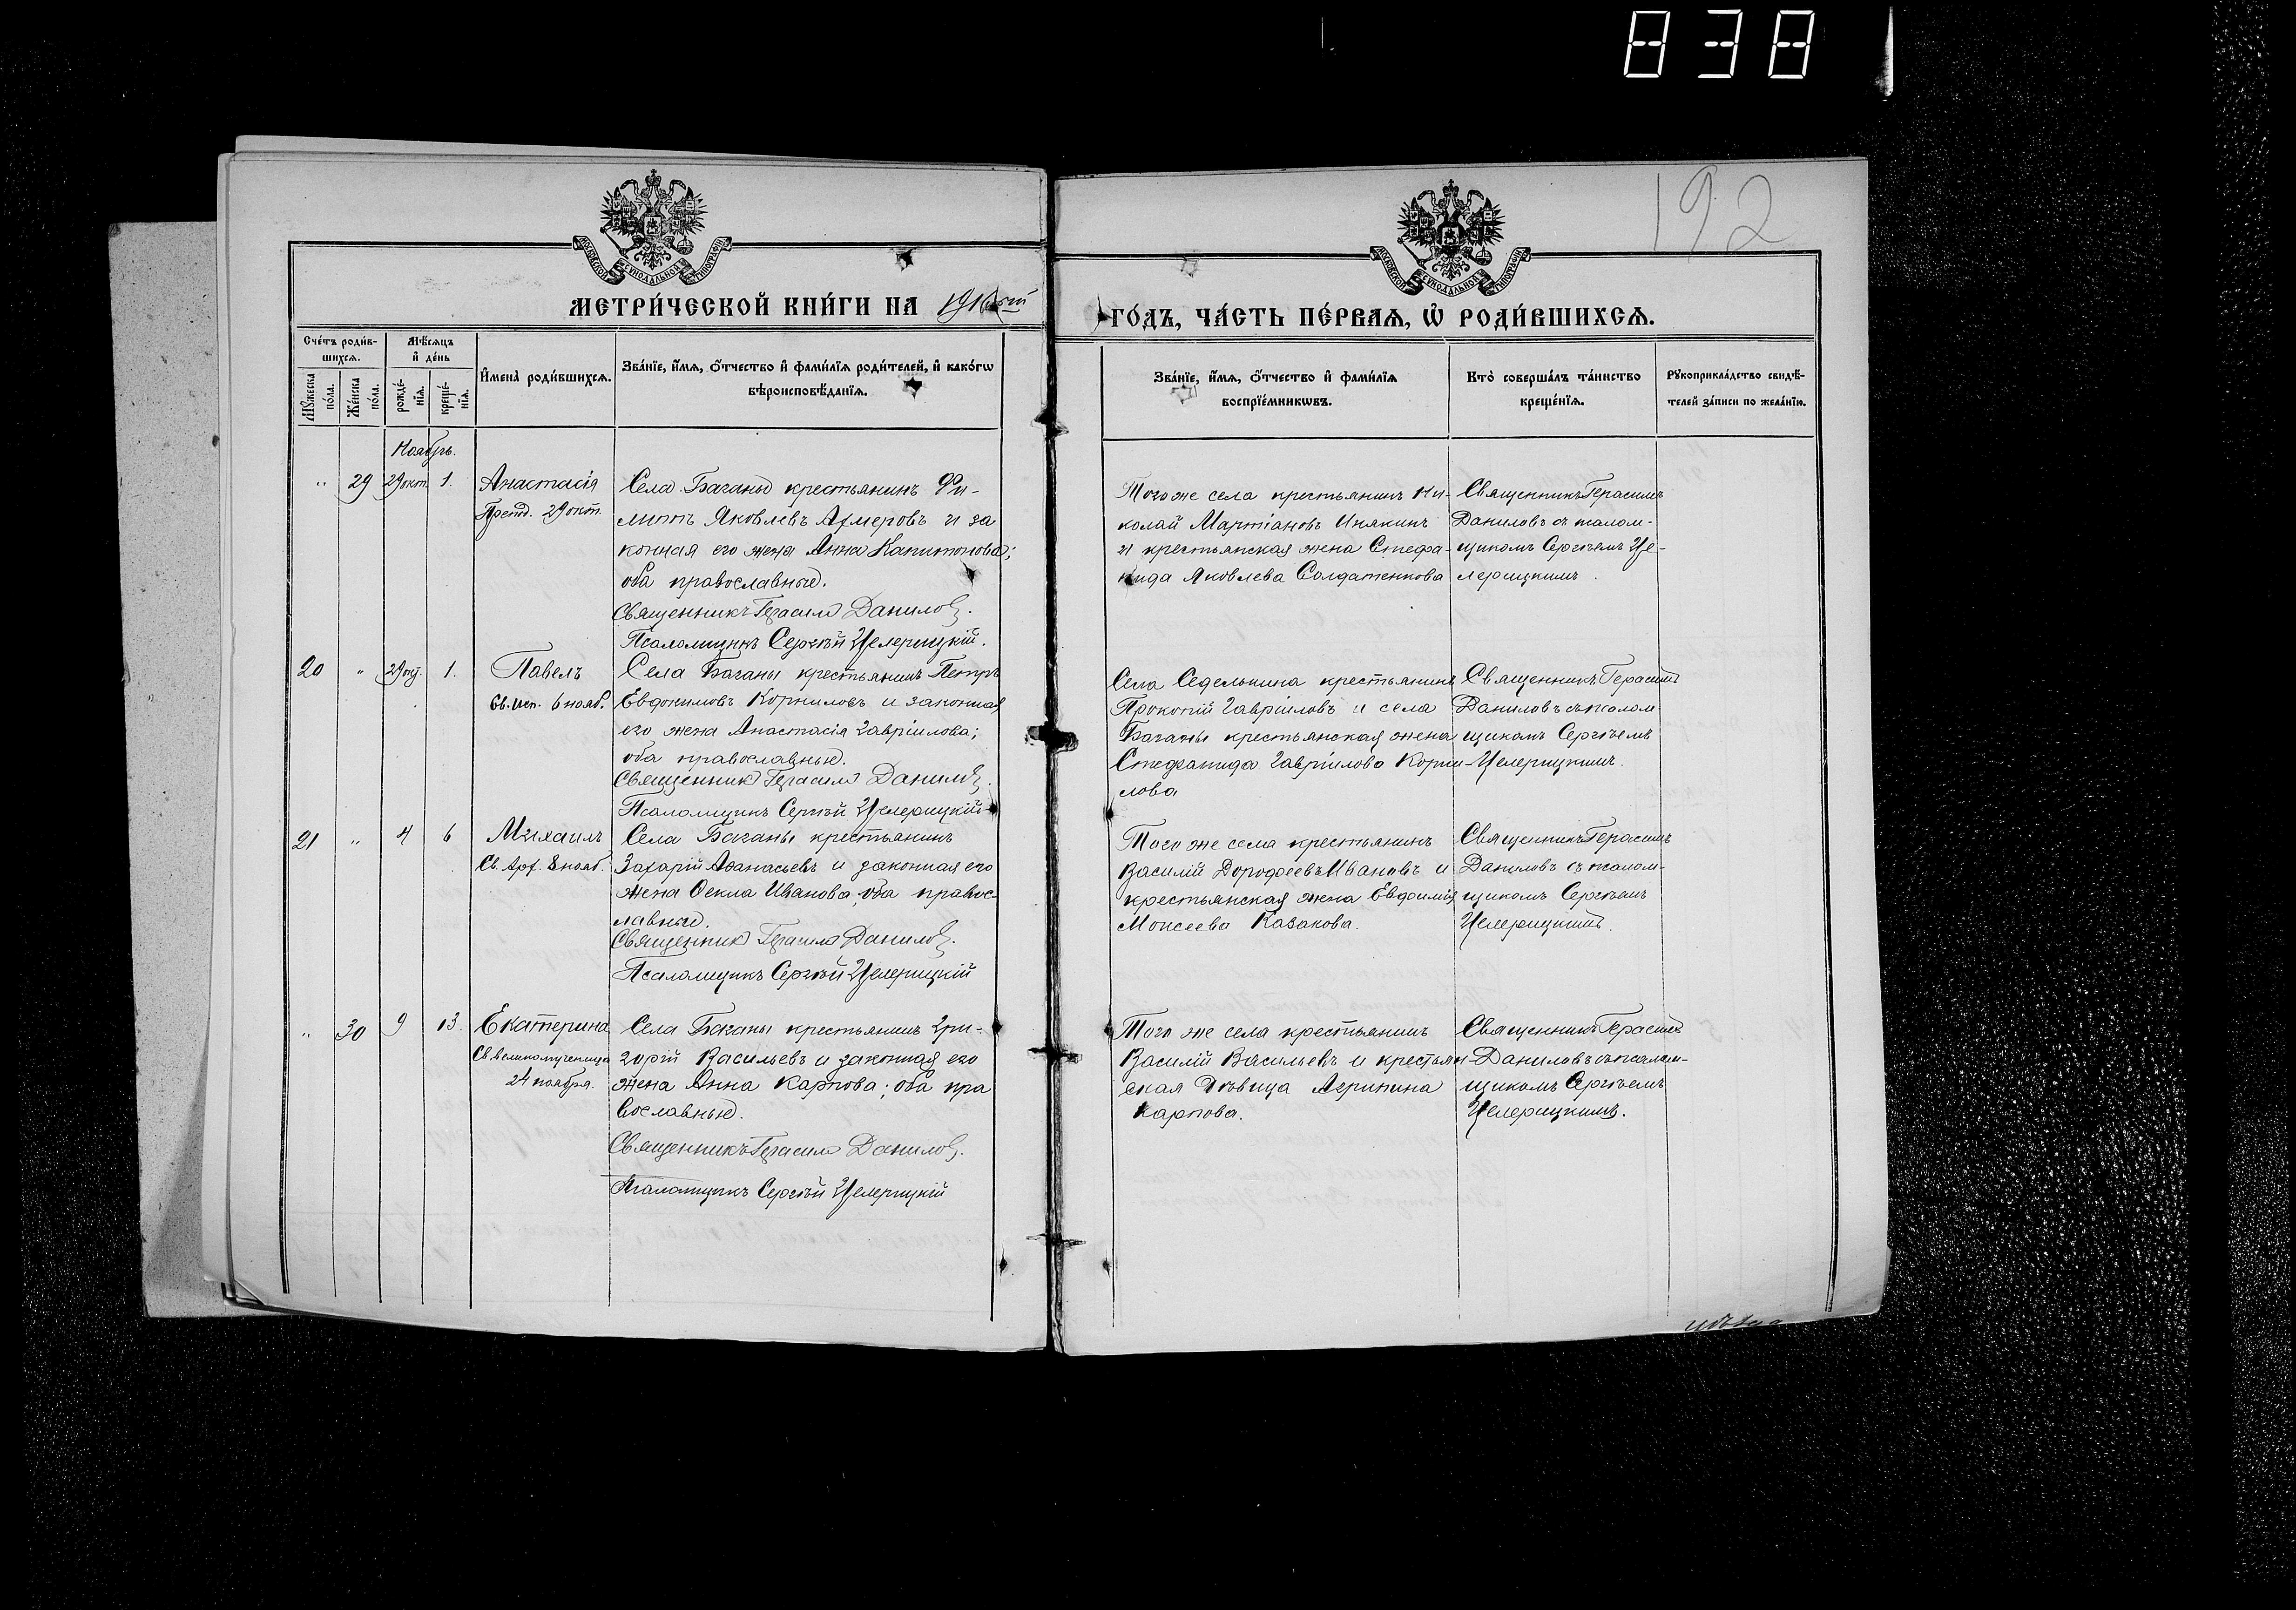 838
192
МОСКОВСКОЙ СѴНОДАЛЬНОЙ ТИПОГРАФІИ
МОСКОВСКОЙ СѴНОДАЛЬНОЙ ТИПОГРАФІИ
МЕТРИ́ЧЕСКОЙ КНИ́ГИ НА
ГО́ДЪ, ЧА́СТЬ ПЕ́РВАѦ, Ѡ҆ РОДИ́ВШИХСѦ.
Сче́тъ роди́в-
шихсѧ.
Мꙋ́жеска
по́ла.
Же́нска
по́ла.
Мѣ́сѧцъ
и҆ де́нь
рожде́-
нїѧ.
креще́-
нїѧ.
И҆мена̀ роди́вшихсѧ.
Зва́нїе, и҆́мѧ, ѻ҆́тчество и҆ фами́лїѧ роди́телей, и҆ како́гѡ
вѣроисповѣ́данїѧ.
Зва́нїе, и҆́мѧ, ѻ҆́тчество и҆ фами́лїѧ
воспрїе́мникѡвъ.
Кто̀ соверша́лъ та́инство
креще́нїѧ.
Рꙋкоприкла́дство свидѣ́-
телей за́писи по жела́нїю.
Ноябрь.
" 29 29 окт. 1.
Анастасія
Преп. 29 окт.
Села Баганы крестьянинъ Фи-
липпъ Яковлевъ Ахмеровъ и за
конная его жена Анна Капитонова;
оба православные.
Священникъ Герасимъ Даниловъ.
Псаломщикъ Сергѣй Целерицкій.
Того же села крестьянинъ Ни-
колай Мартіановъ Инякинъ
и крестьянская жена Стефа-
нида Яковлева Солдатенкова
Священникъ Герасимъ
Даниловъ съ псалом-
щикомъ Сергѣемъ Це-
лерицкимъ.
20 " 29 окт. 1.
Павелъ
Св. исп. 6 нояб.
Села Баганы крестьянинъ Петръ
Евдокимовъ Корниловъ и законная
его жена Анастасія Гавріилова;
оба православные.
Священникъ Герасимъ Даниловъ.
Псаломщикъ Сергѣй Целерицкій
Села Седелькина крестьянинъ
Прокопій Гавріиловъ и села
Баганы крестьянская жена
Стефанида Гавріилова Корни-
лова
Священникъ Герасимъ
Даниловъ съ псалом
щикомъ Сергѣемъ
Целерицкимъ.
21 " 4 6
Михаилъ
Св. Арх. 8 нояб.
Села Баганы крестьянинъ
Захарій Аѳанасьевъ и законная его
жена Ѳекла Иванова, оба правос-
лавные.
Священникъ Герасимъ Даниловъ.
Псаломщикъ Сергѣй Целерицкій
Того же села крестьянинъ
Василій Дороѳеевъ Ивановъ и
крестьянская жена Евфимія
Моисеева Казакова.
Священникъ Герасимъ
Даниловъ съ псалом-
щикомъ Сергѣемъ
Целерицкимъ.
" 30 9 13.
Екатерина
Св великомученица
24 ноября.
Села Баганы крестьянинъ Гри-
горій Васильевъ и законная его
жена Анна Карпова; оба пра
вославные.
Священникъ Герасимъ Даниловъ.
Псаломщикъ Сергѣй Целерицкій
Того же села крестьянинъ
Василій Васильевъ и крестьян
ская дѣвица Агрипина
Карпова.
Священникъ Герасимъ
Даниловъ съ псалом-
щикомъ Сергѣемъ
Целерицкимъ.